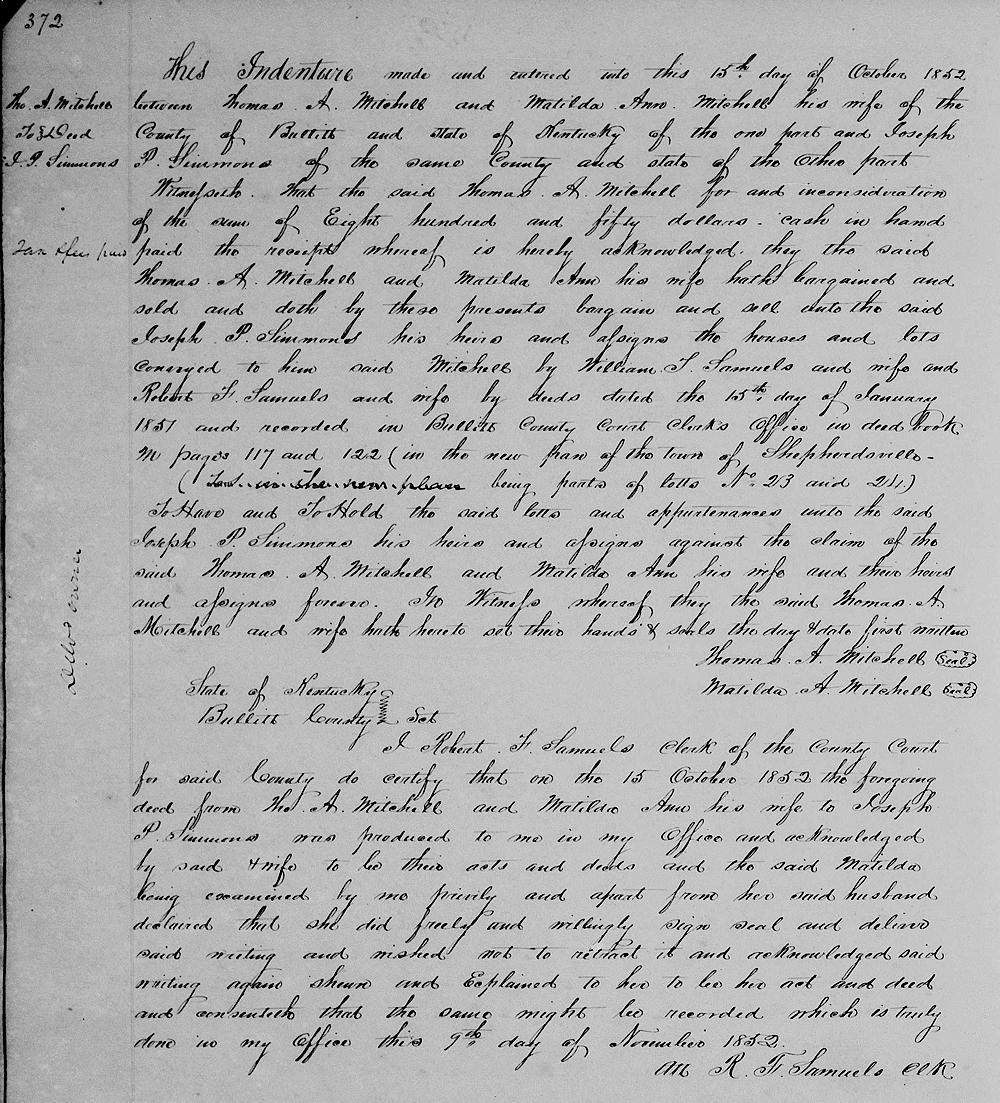 372
This Indenture made and entered into this 15th day of October 1852
Tho. A. Mitchell
between Thomas. A. Mitchell and Matilda Ann. Mitchell his wife of the
To } Deed
County of Bullitt and state of Kentucky of the one part and Joseph
J. P. Simmons
P. Simmons of the same County and state of the Other part
Witnesseth. That the said Thomas. A. Mitchell for and inconsideration
of the sum of Eight hundred and fifty dollars - cash in hand
Tax & fees paid
paid the receipt whereof is hereby acknowledged. they the said
Thomas. A. Mitchell and Matilda Ann his wife hath bargained and
sold and doth by these presents bargain and sell unto the said
Joseph P. Simmons his heirs and assigns the houses and lots
conveyed to him said Mitchell by William. T. Samuels and wife and
Robert F. Samuels and wife by deeds dated the 15th day of January
1851 and recorded in Bullitt County Court Clerk's Office in deed book
M pages 117 and 122 (in the new plan of the town of Shepherdsville -
( in the new plan being parts of lotts No. 23 and 24)
To Have and To Hold the said lotts and appurtenances unto the said
Joseph P Simmons his heirs and assigns against the claim of the
said Thomas. A. Mitchell and Matilda Ann his wife and their heirs
and assigns forever. In Witness whereof they the said Thomas. A
Mitchell and wife hath hereto set their hands & seals the day & date first written
Thomas. A. Mitchell (Seal)
Matilda. A. Mitchell (Seal)
State of Kentucky
Bullitt County } Sct
I Robert. F. Samuels Clerk of the County Court
for said County do certify that on the 15 October 1852 the foregoing
deed from Tho. A. Mitchell and Matilda Ann his wife to Joseph
P. Simmons was produced to me in my Office and acknowledged
by said & wife to be their acts and deeds and the said Matilda
being examined by me privily and apart from her said husband
declaired that she did freely and willingly sign seal and deliver
said writing and wished not to retract it and acknowledged said
writing again shewn and Explained to her to be her act and deed
and consenteth that the same might be recorded which is truly
done in my Office this 9th day of November 1852.
Att R. F. Samuels Clk